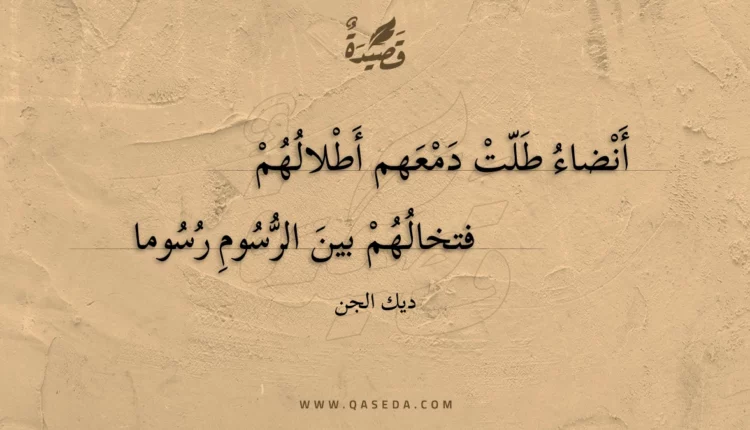 قَصِيدَةٌ
أَنْضاءُ طَلّتْ دَمْعَهم أَطْلالُهُمْ
فتخالُهُمْ بينَ الرُّسُومِ رُسُوما
ديك الجن
WWW.QASEDA.COM